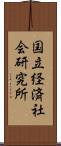 国立経済社
会研究所